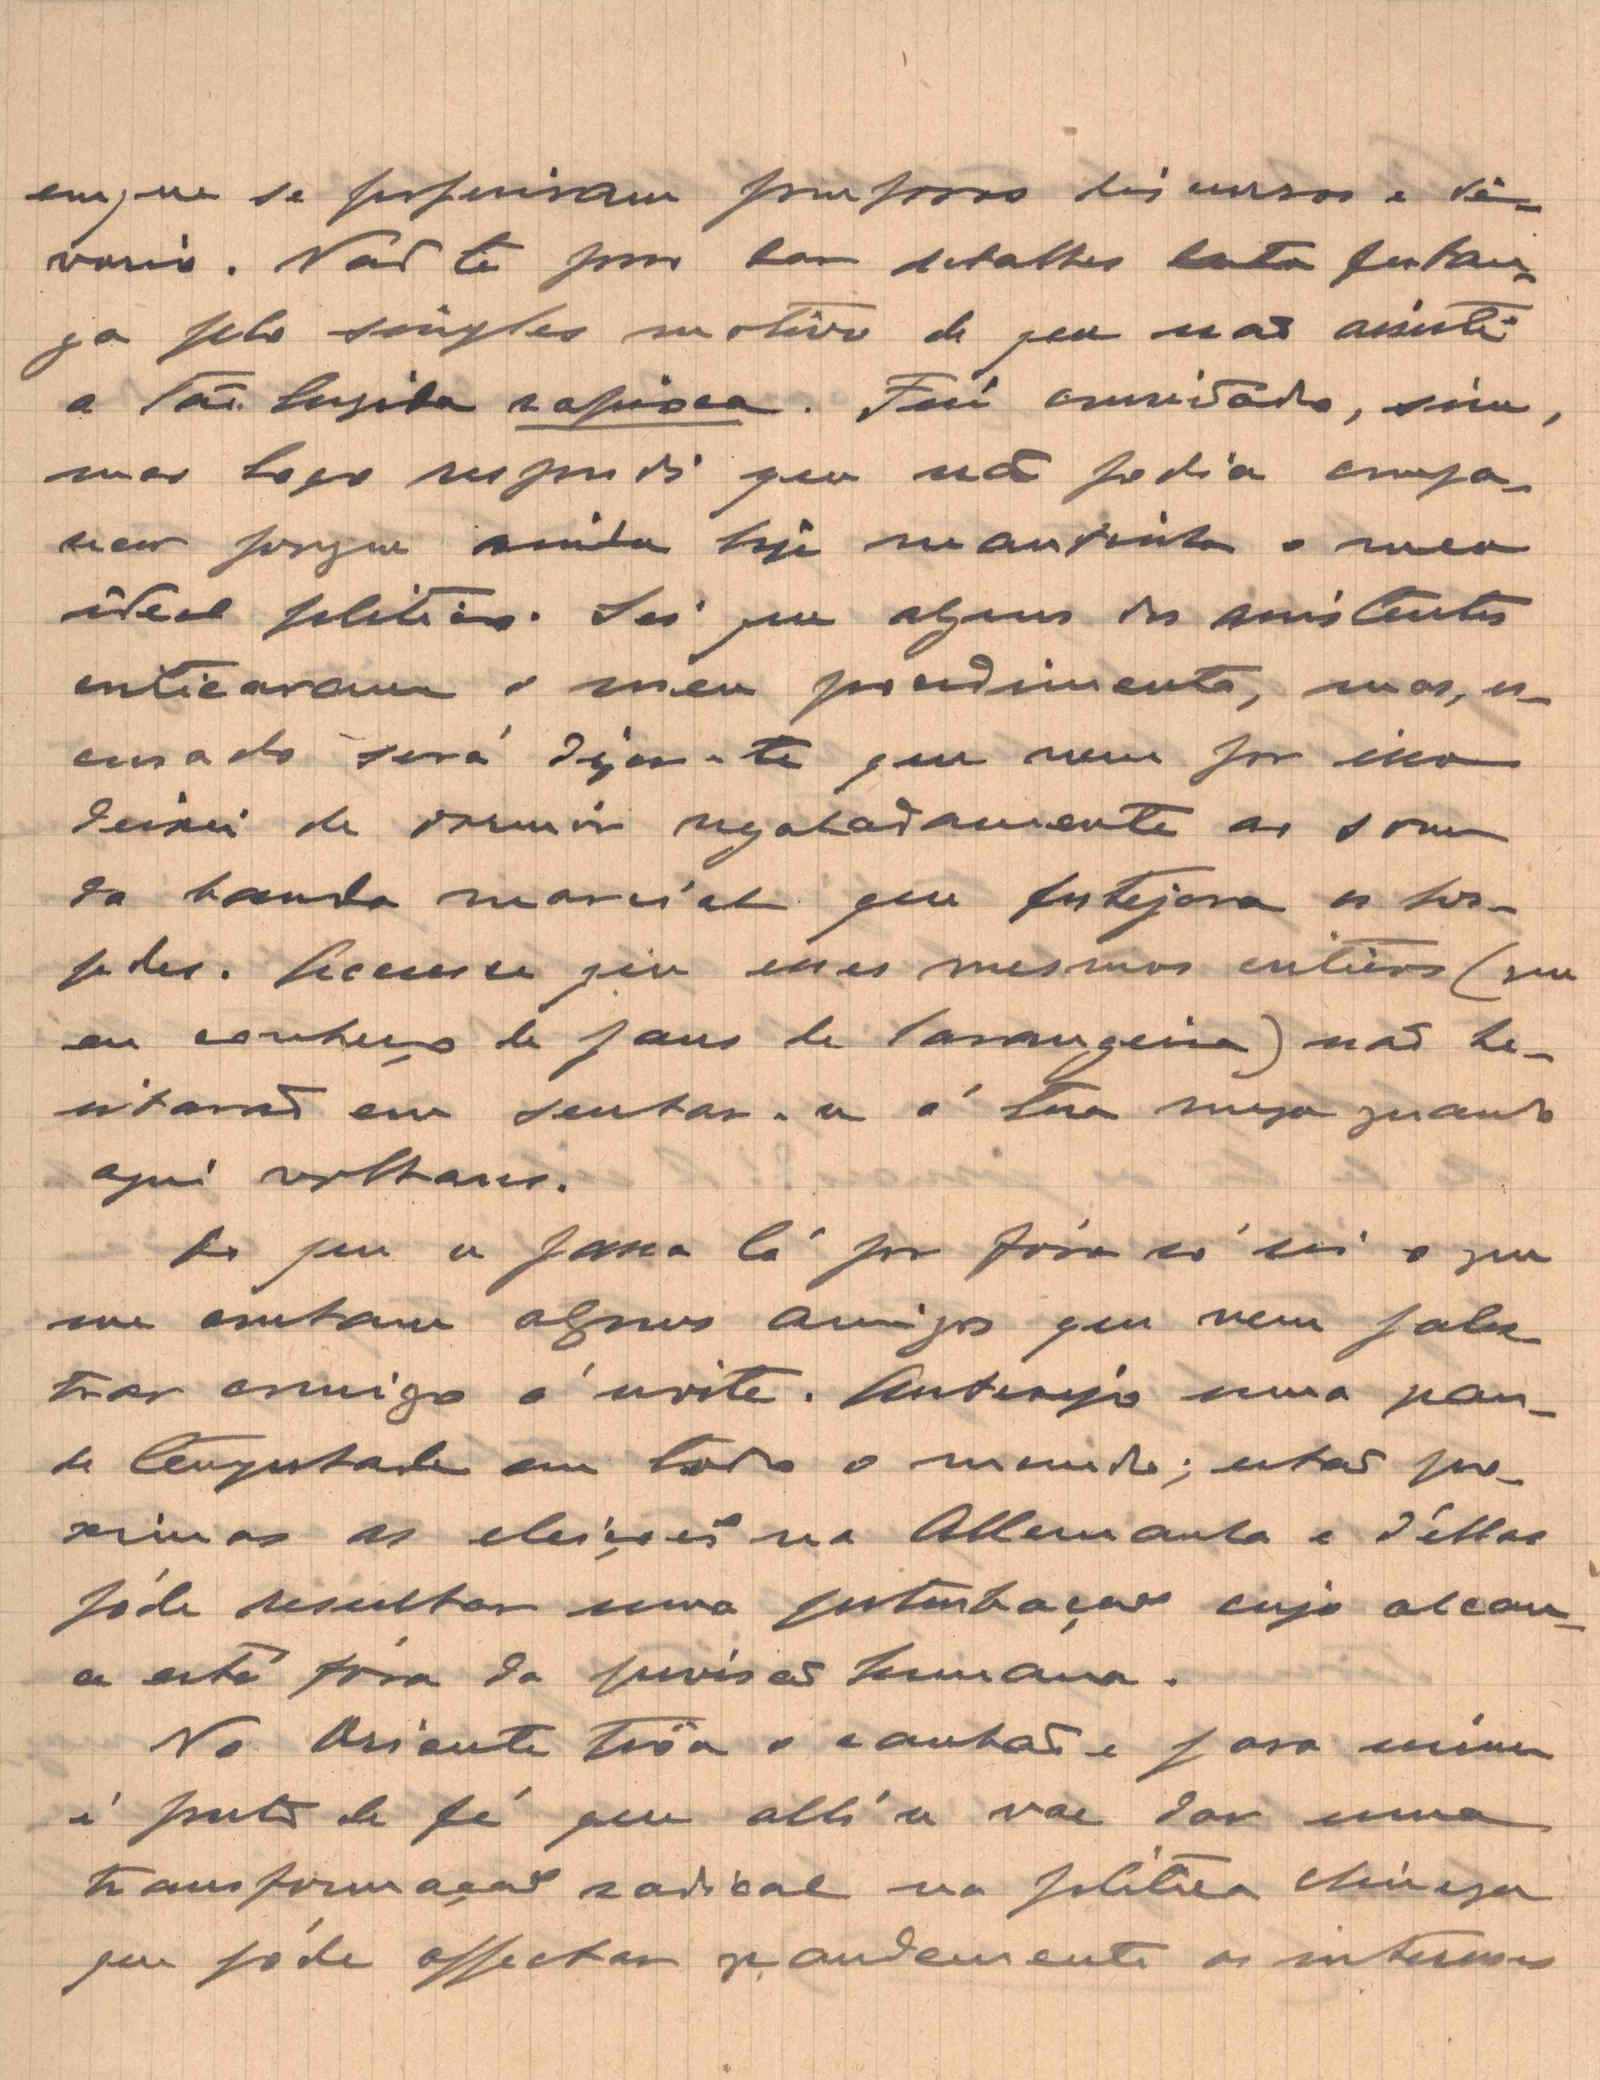 em que se proferiram pomposos discursos e de-
vorio. Não te posso dar detalhes desta festan-
ça pelo simples motivo de que não assisti
a tão luzida rapioca. Fui convidado, sim,
mas logo respondi que não podia compa-
recer porque ainda hoje mantinha o meu
ideal politico. Sei que alguns dos assistentes
criticaram o meu procedimento, mas, es-
cusado será dizer-te que nem por isso
deixei de dormir regaladamente ao som
da banda marcial que festejava os hos-
pedes. Accresce que esses mesmos criticos (que
eu conheço de paus de larangeira) não he-
sitarão em sentar-se á tua meza quando
aqui voltares.
Do que se passa lá por fóra só sei o que
me contam alguns amigos que vem pales
trar commigo á noite. Antevejo uma gran-
de tempestade em todo o mundo; estão pro-
ximas as eleições na Allemanha e d'ellas
póde resultar uma perturbação cujo alcan-
ce está fóra da previsão humana.
No Oriente trôa o canhão e para mim
é ponto de fé que alli se vae dar uma
transformação radical na politica chineza
que póde affectar grandemente os interesses